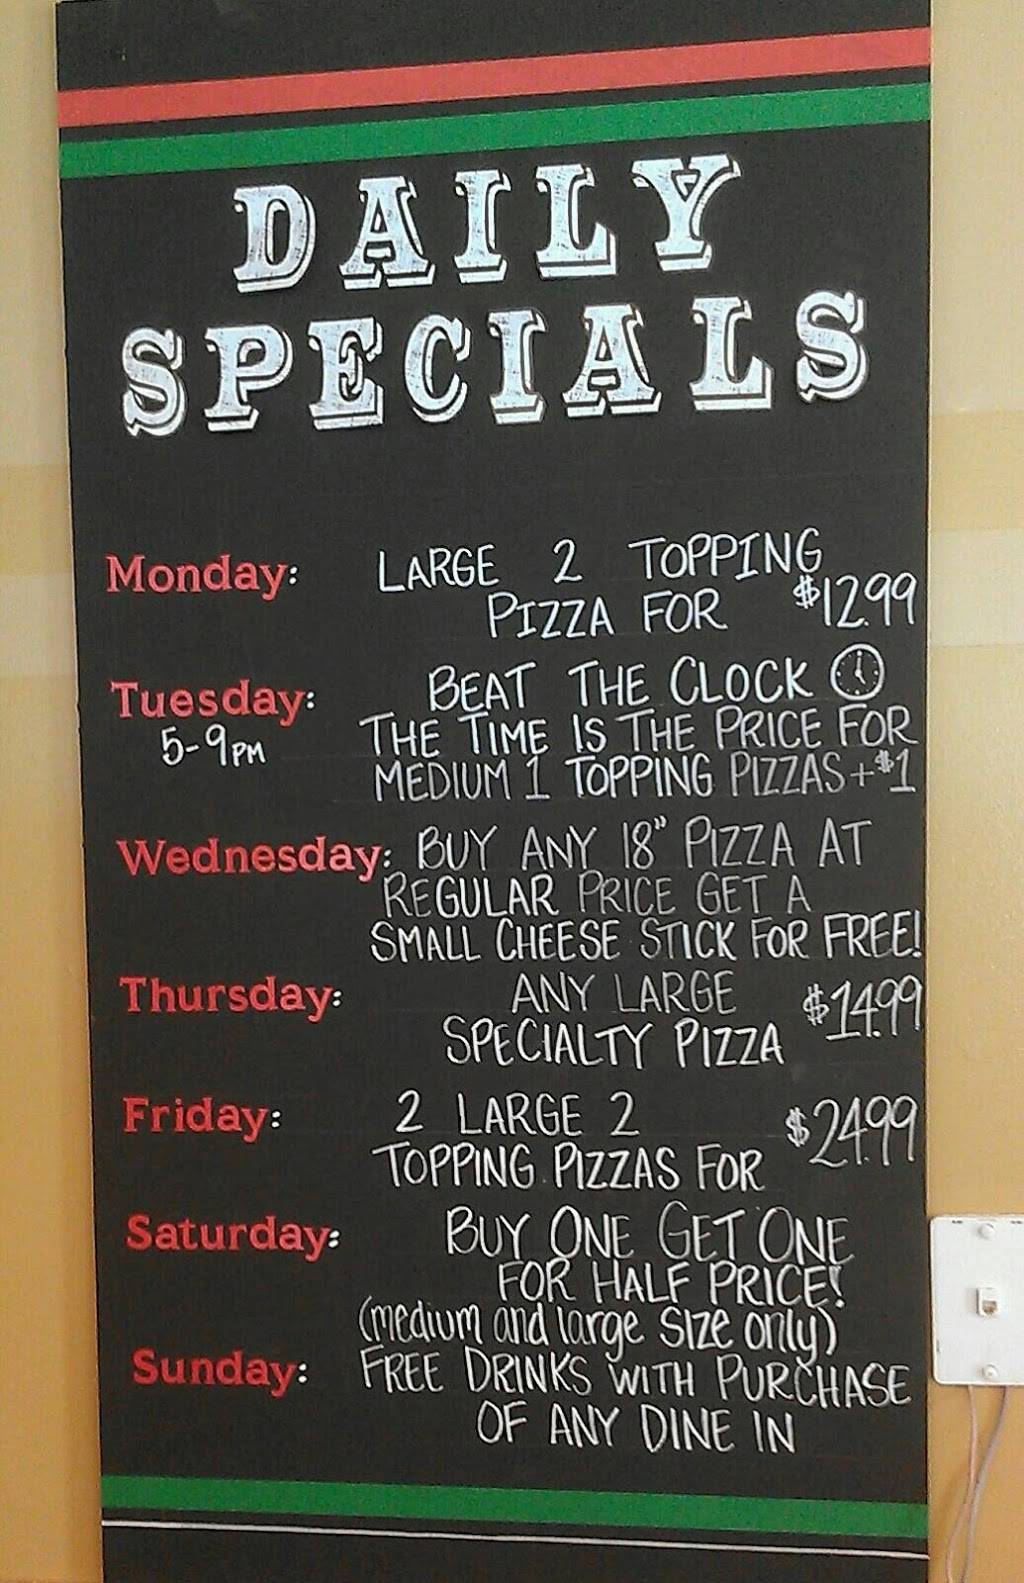 DAILY
SPECIALS
Monday: LARGE 2 TOPPING
PIZZA FOR $12.99
Tuesday: BEAT THE CLOCK
5-9PM THE TIME IS THE PRICE FOR
MEDIUM 1 TOPPING PIZZAS+$1
Wednesday: BUY ANY 18" PIZZA AT
REGULAR PRICE GET A
SMALL CHEESE STICK FOR FREE!
Thursday: ANY LARGE $14.99
SPECIALTY PIZZA
Friday: 2 LARGE 2 $24.99
TOPPING PIZZAS FOR
Saturday: BUY ONE GET ONE
FOR HALF PRICE!
(medium and large size only)
Sunday: FREE DRINKS WITH PURCHASE
OF ANY DINE IN